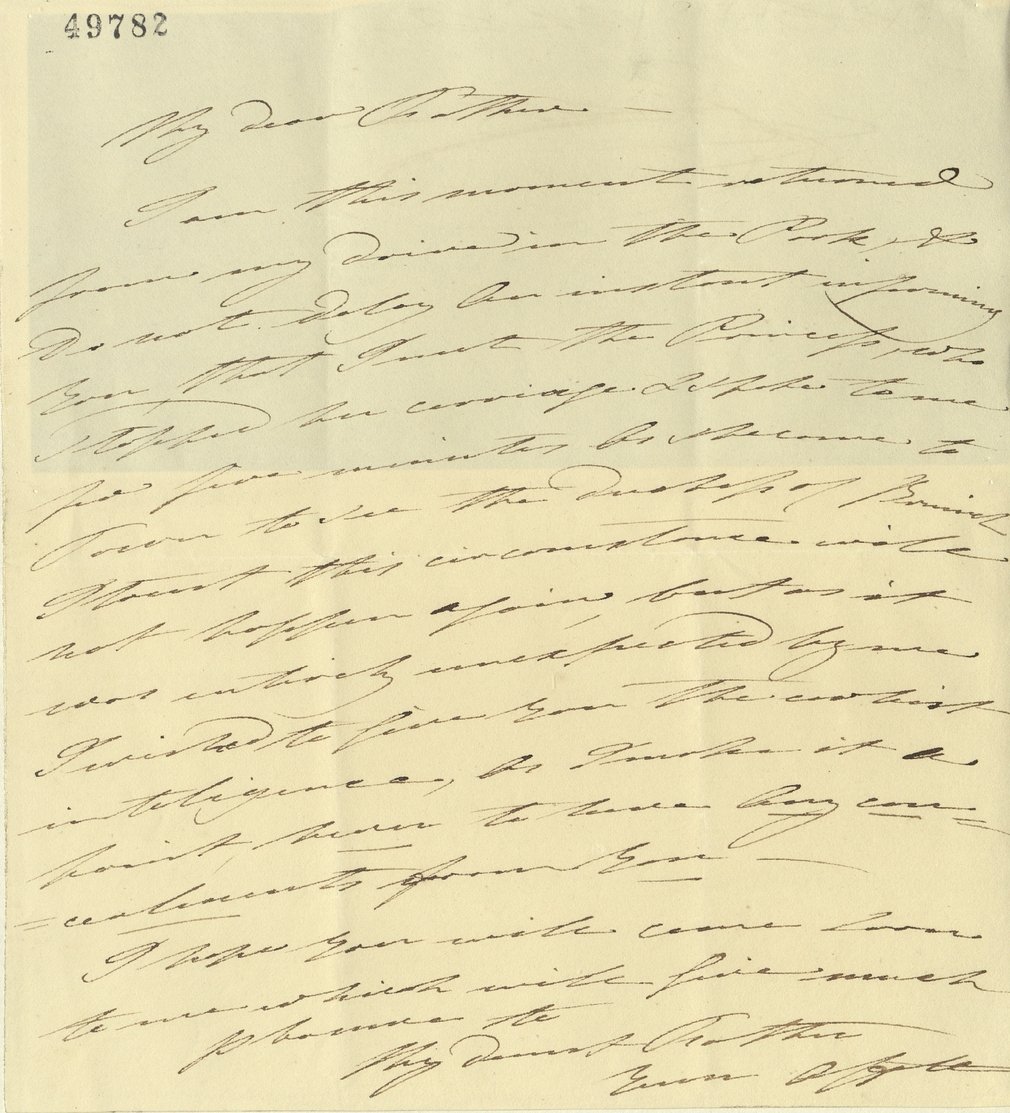 49782
My dear Father —
I am this moment returned
from my drive in the Park, &
do not delay an instant informing
you that I met the Princess, who
stopped her carriage & spoke to me
for five minutes as she came to
Town to see the Duchess of Brunsk
I trust this circumstance will
not happen again, but as it
was entirely unexpected by me
I wished to give you the earliest
inteligence, as I make it a
point, never to have any con=
=cealments from you —
I hope you will come soon
to me which will give much
pleasure to
My dearest Father
Your Affte